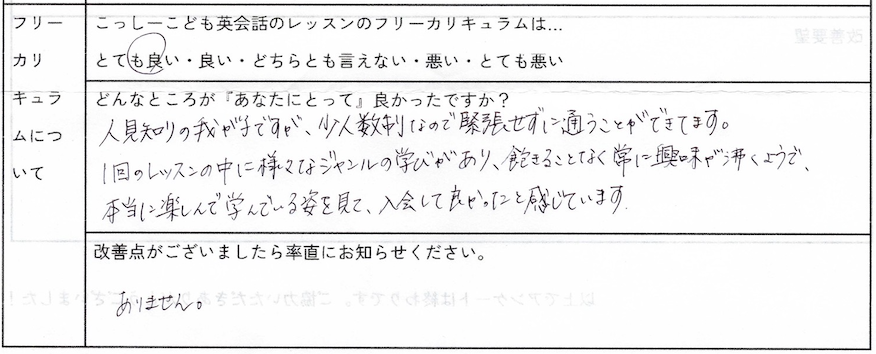 フリーカリキュラムについて
こっしーこども英会話のレッスンのフリーカリキュラムは…
とても良い・良い・どちらとも言えない・悪い・とても悪い
どんなところが『あなたにとって』良かったですか？
人見知りの我が子ですが、少人数制なので緊張せずに通うことができてます。
1回のレッスンの中に様々なジャンルの学びがあり、飽きることなく常に興味が沸くようで、
本当に楽しんで学んでいる姿を見て、入会して良かったと感じています.
改善点がございましたら率直にお知らせください。
ありません。
改善要望
以上でアンケートは終わりです。ご協力いただきありがとうございました！